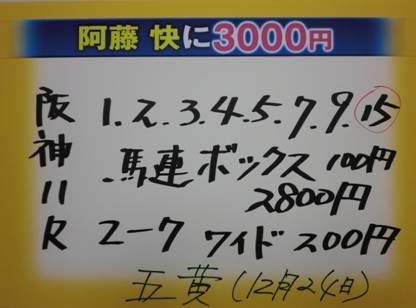 阿藤 快に3000円
阪神11R
1.2.3.4.5.7.9.15
.馬連ボックス 100円
2800円
2-7 ワイド 200円
(12月24日)